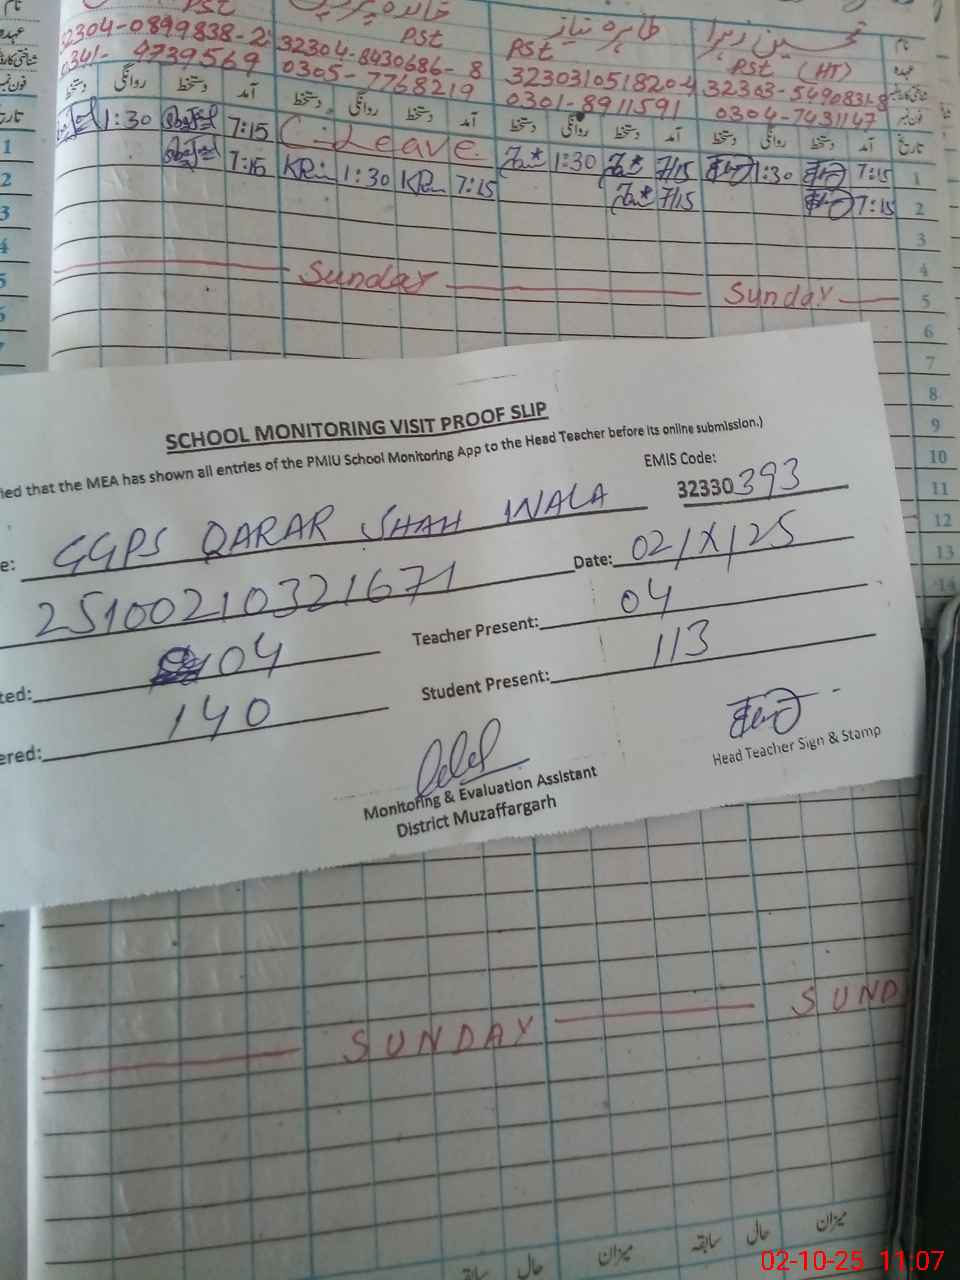 نام
خالدہ پروین
طاہرہ نیاز
تحسین زہرا
نام
PST
PST
PST
PST (HT)
عہدہ
32304-0899838-2
32304-8430686-8
3230310518204
32303-5490831-8
0341-4739569
0305-7768219
0301-8911591
0304-7431147
فون نمبر
دستخط روانگی دستخط آمد دستخط روانگی دستخط آمد دستخط روانگی دستخط آمد دستخط روانگی دستخط آمد تاریخ
1 1:30 7:15 C-Leave 1:30 7:15 1:30 7:15 1
2 7:15 1:30 7:15 7:15 7:15 2
3 3
4 4
5 Sunday Sunday 5
6
7
8
9
10
11
12
13
14
SCHOOL MONITORING VISIT PROOF SLIP
ied that the MEA has shown all entries of the PMIU School Monitoring App to the Head Teacher before its online submission.)
EMIS Code:
e: GGPS QARAR SHAH WALA 32330393
25100210321671 Date: 02/X/25
ted: 04 Teacher Present: 04
ered: 140 Student Present: 113
Monitoring & Evaluation Assistant
District Muzaffargarh
Head Teacher Sign & Stamp
SUNDAY SUND
حال میزان سابقہ حال میزان
02-10-25 11:07